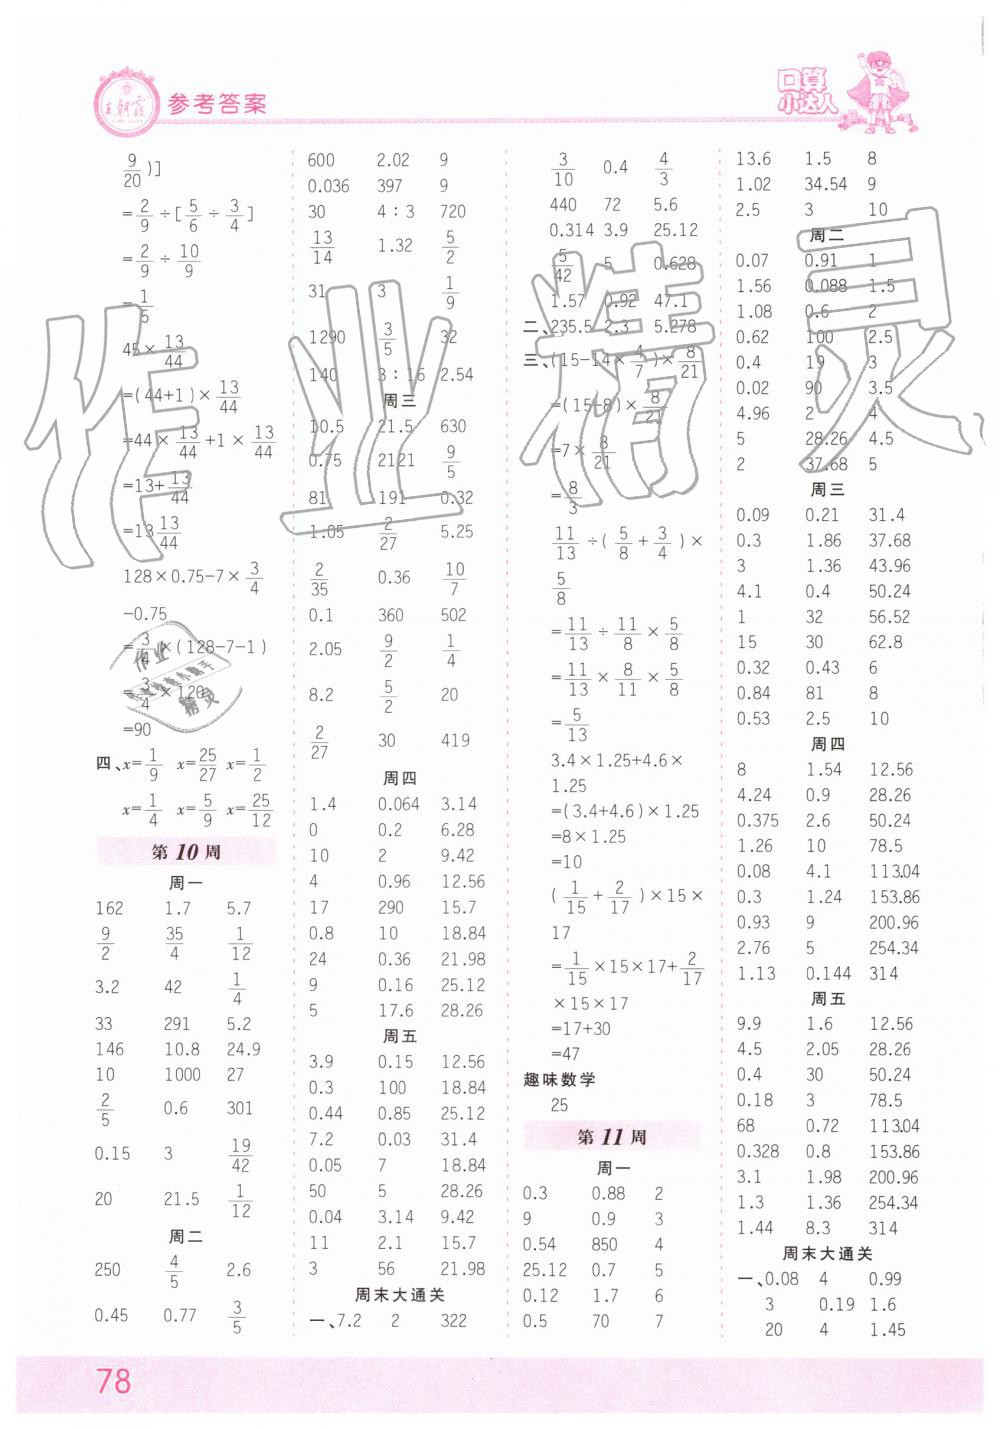 王朝霞
参考答案
口算
小达人
9/20)]
=2/9÷[5/6÷3/4]
=2/9÷10/9
=1/5
45×13/44
=(44+1)×13/44
=44×13/44+1×13/44
=13+13/44
=13 13/44
128×0.75-7×3/4
-0.75
=3/4×(128-7-1)
=3/4×120
=90
四、x=1/9 x=25/27 x=1/2
x=1/4 x=5/9 x=25/12
第10周
周一
162 1.7 5.7
9/2 35/4 1/12
3.2 42 1/4
33 291 5.2
146 10.8 24.9
10 1000 27
2/5 0.6 301
0.15 3 19/42
20 21.5 1/12
周二
250 4/5 2.6
0.45 0.77 3/5
600 2.02 9
0.036 397 9
30 4:3 720
13/14 1.32 5/2
31 3 1/9
1290 3/5 32
140 3:16 2.54
周三
10.5 21.5 630
0.75 2121 9/5
81 191 0.32
1.05 2/27 5.25
2/35 0.36 10/7
0.1 360 502
2.05 9/2 1/4
8.2 5/2 20
2/27 30 419
周四
1.4 0.064 3.14
0 0.2 6.28
10 2 9.42
4 0.96 12.56
17 290 15.7
0.8 10 18.84
24 0.36 21.98
9 0.16 25.12
5 17.6 28.26
周五
3.9 0.15 12.56
0.3 100 18.84
0.44 0.85 25.12
7.2 0.03 31.4
0.05 7 18.84
50 5 28.26
0.04 3.14 9.42
11 2.1 15.7
3 56 21.98
周末大通关
一、7.2 2 322
3/10 0.4 4/3
440 72 5.6
0.314 3.9 25.12
5/42 5 0.628
1.57 0.92 47.1
二、235.5 2.3 5.278
三、(15-14×4/7)×8/21
=(15-8)×8/21
=7×8/21
=8/3
11/13÷(5/8+3/4)×
5/8
=11/13÷11/8×5/8
=11/13×8/11×5/8
=5/13
3.4×1.25+4.6×
1.25
=(3.4+4.6)×1.25
=8×1.25
=10
(1/15+2/17)×15×
17
=1/15×15×17+2/17
×15×17
=17+30
=47
趣味数学
25
第11周
周一
0.3 0.88 2
9 0.9 3
0.54 850 4
25.12 0.7 5
0.12 1.7 6
0.5 70 7
13.6 1.5 8
1.02 34.54 9
2.5 3 10
周二
0.07 0.91 1
1.56 0.088 1.5
1.08 0.6 2
0.62 100 2.5
0.4 19 3
0.02 90 3.5
4.96 2 4
5 28.26 4.5
2 37.68 5
周三
0.09 0.21 31.4
0.3 1.86 37.68
3 1.36 43.96
4.1 0.4 50.24
1 32 56.52
15 30 62.8
0.32 0.43 6
0.84 81 8
0.53 2.5 10
周四
8 1.54 12.56
4.24 0.9 28.26
0.375 2.6 50.24
1.26 10 78.5
0.08 4.1 113.04
0.3 1.24 153.86
0.93 9 200.96
2.76 5 254.34
1.13 0.144 314
周五
9.9 1.6 12.56
4.5 2.05 28.26
0.4 30 50.24
0.18 3 78.5
68 0.72 113.04
0.328 0.8 153.86
3.1 1.98 200.96
1.3 1.36 254.34
1.44 8.3 314
周末大通关
一、0.08 4 0.99
3 0.19 1.6
20 4 1.45
作业精灵
作业
精灵
78